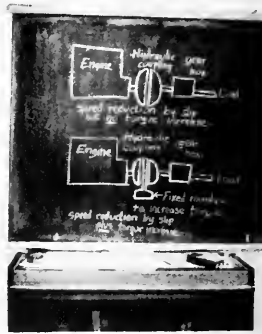 Hydraulic
coupling
gear
box
Engine
Load
speed reduction by slip
but no torque increase
Hydraulic
coupling
gear
box
Engine
Load
Fixed
to increase torque
speed reduction by slip
plus torque increase